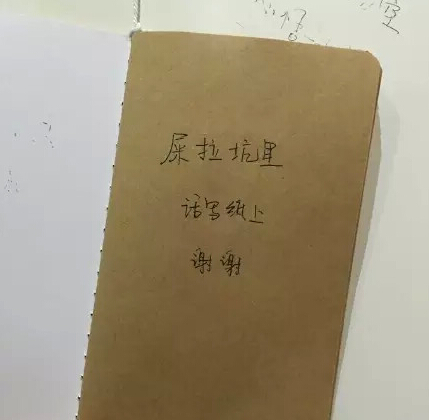 屎拉坑里
话写纸上
谢谢